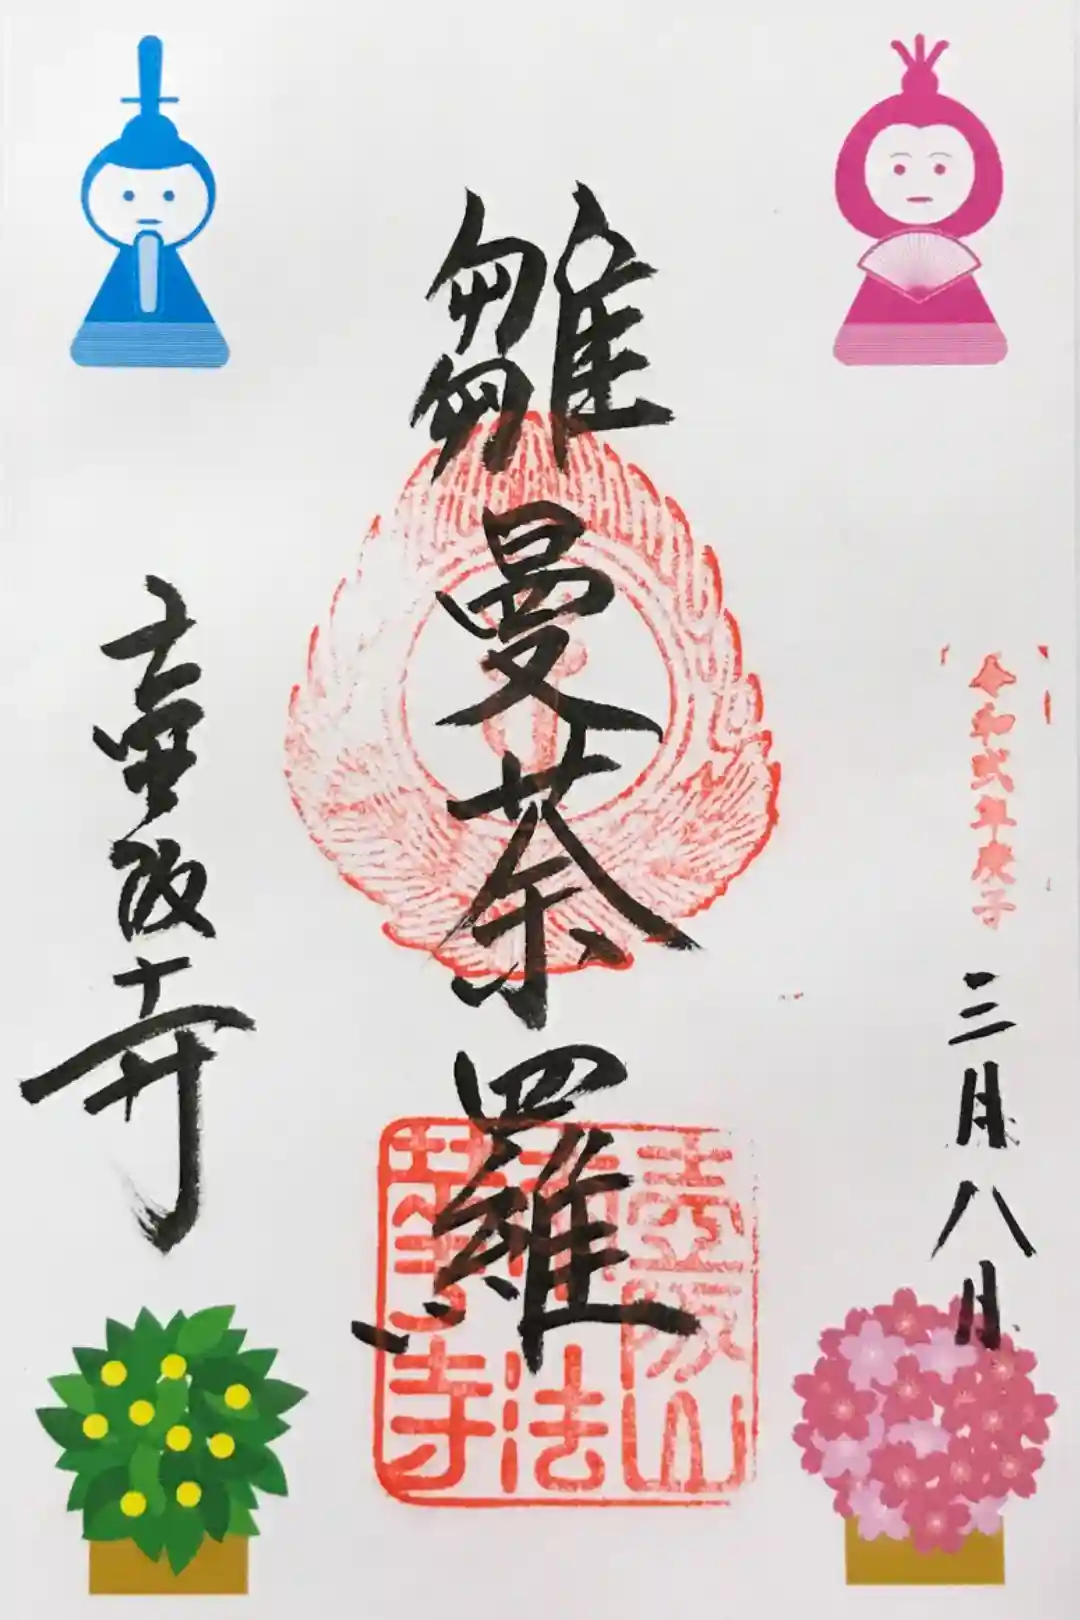 令和弐年庚子
三月八日
雛曼荼羅
壺阪山
南法
華寺
壷阪寺